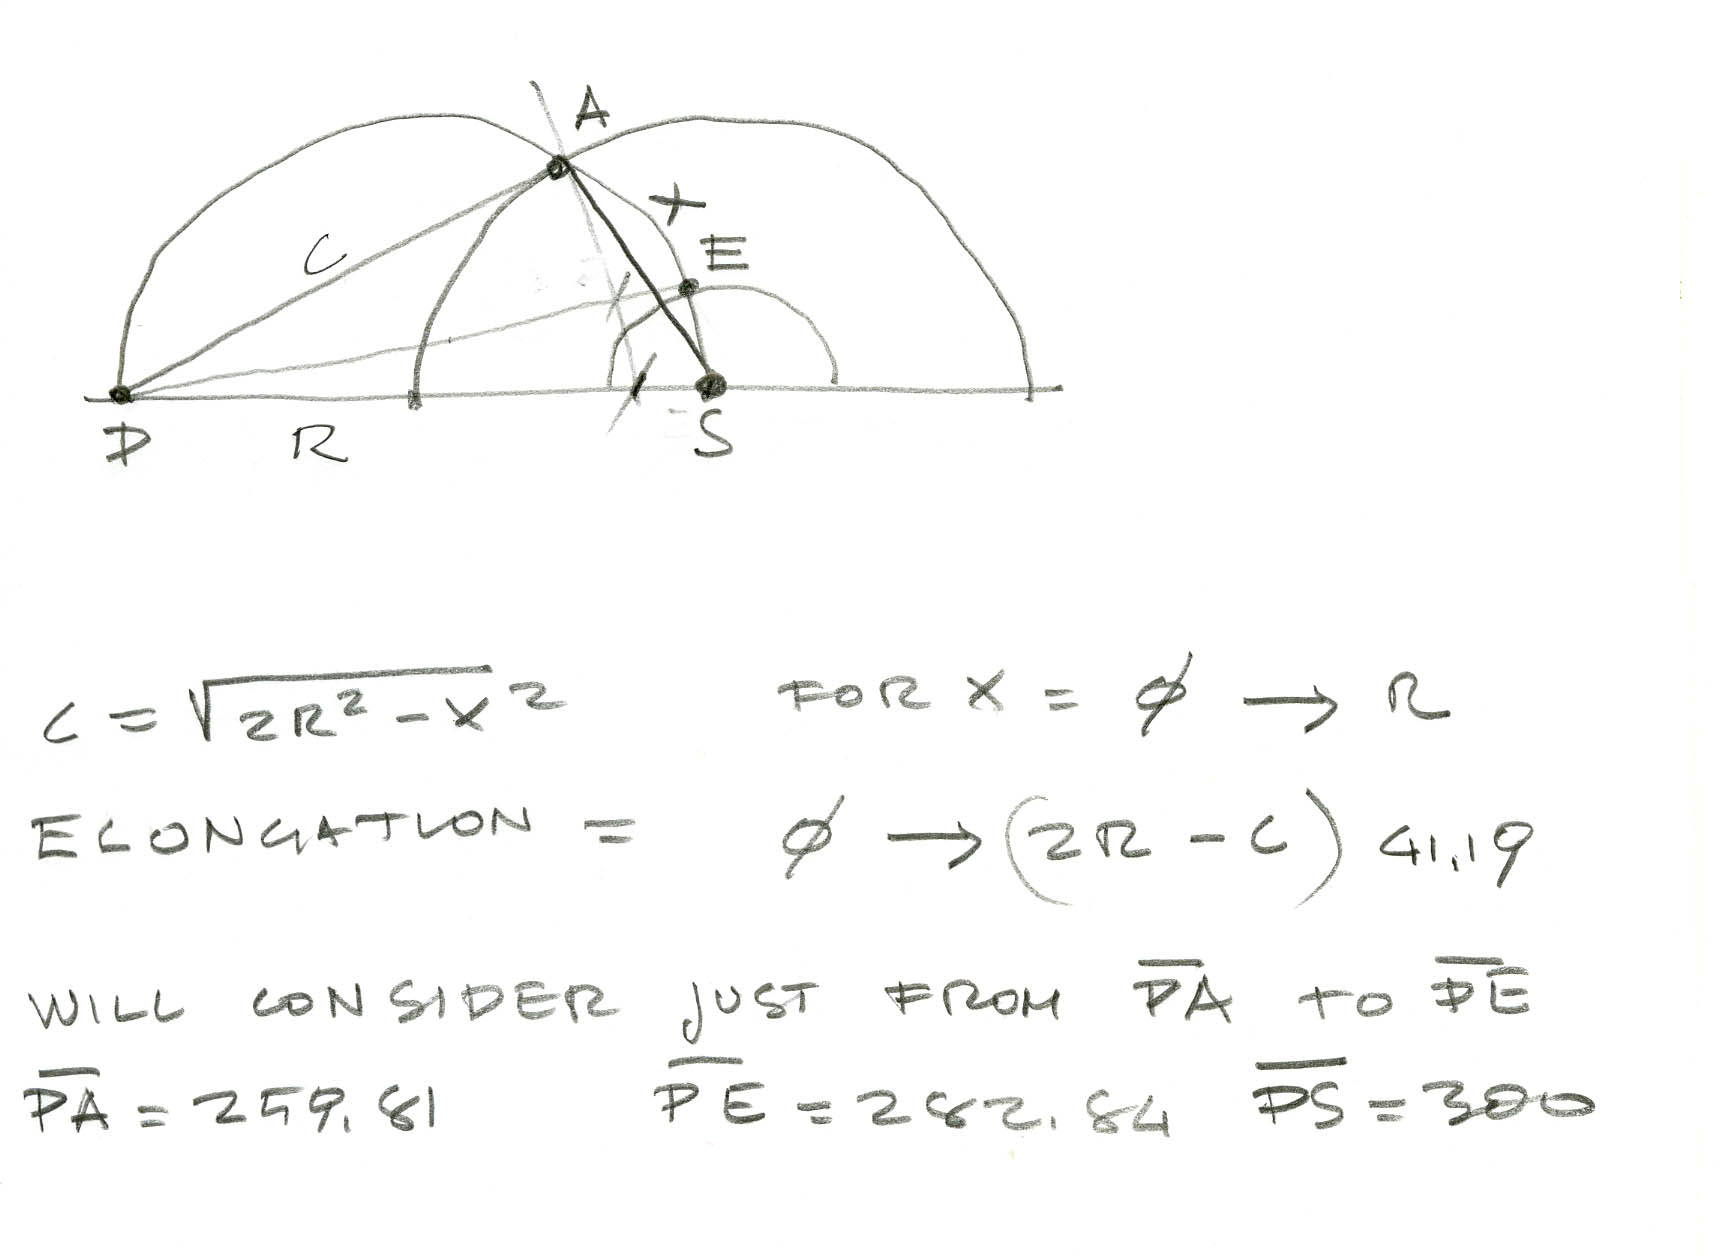 A
X
E
C
P R S
C = √2R² - X² FOR X = ∅ → R
ELONGATION = ∅ → (2R - C) 41,19
WILL CONSIDER JUST FROM P̅A̅ TO P̅E̅
P̅A̅ = 259,81 P̅E̅ = 282,84 P̅S̅ = 300